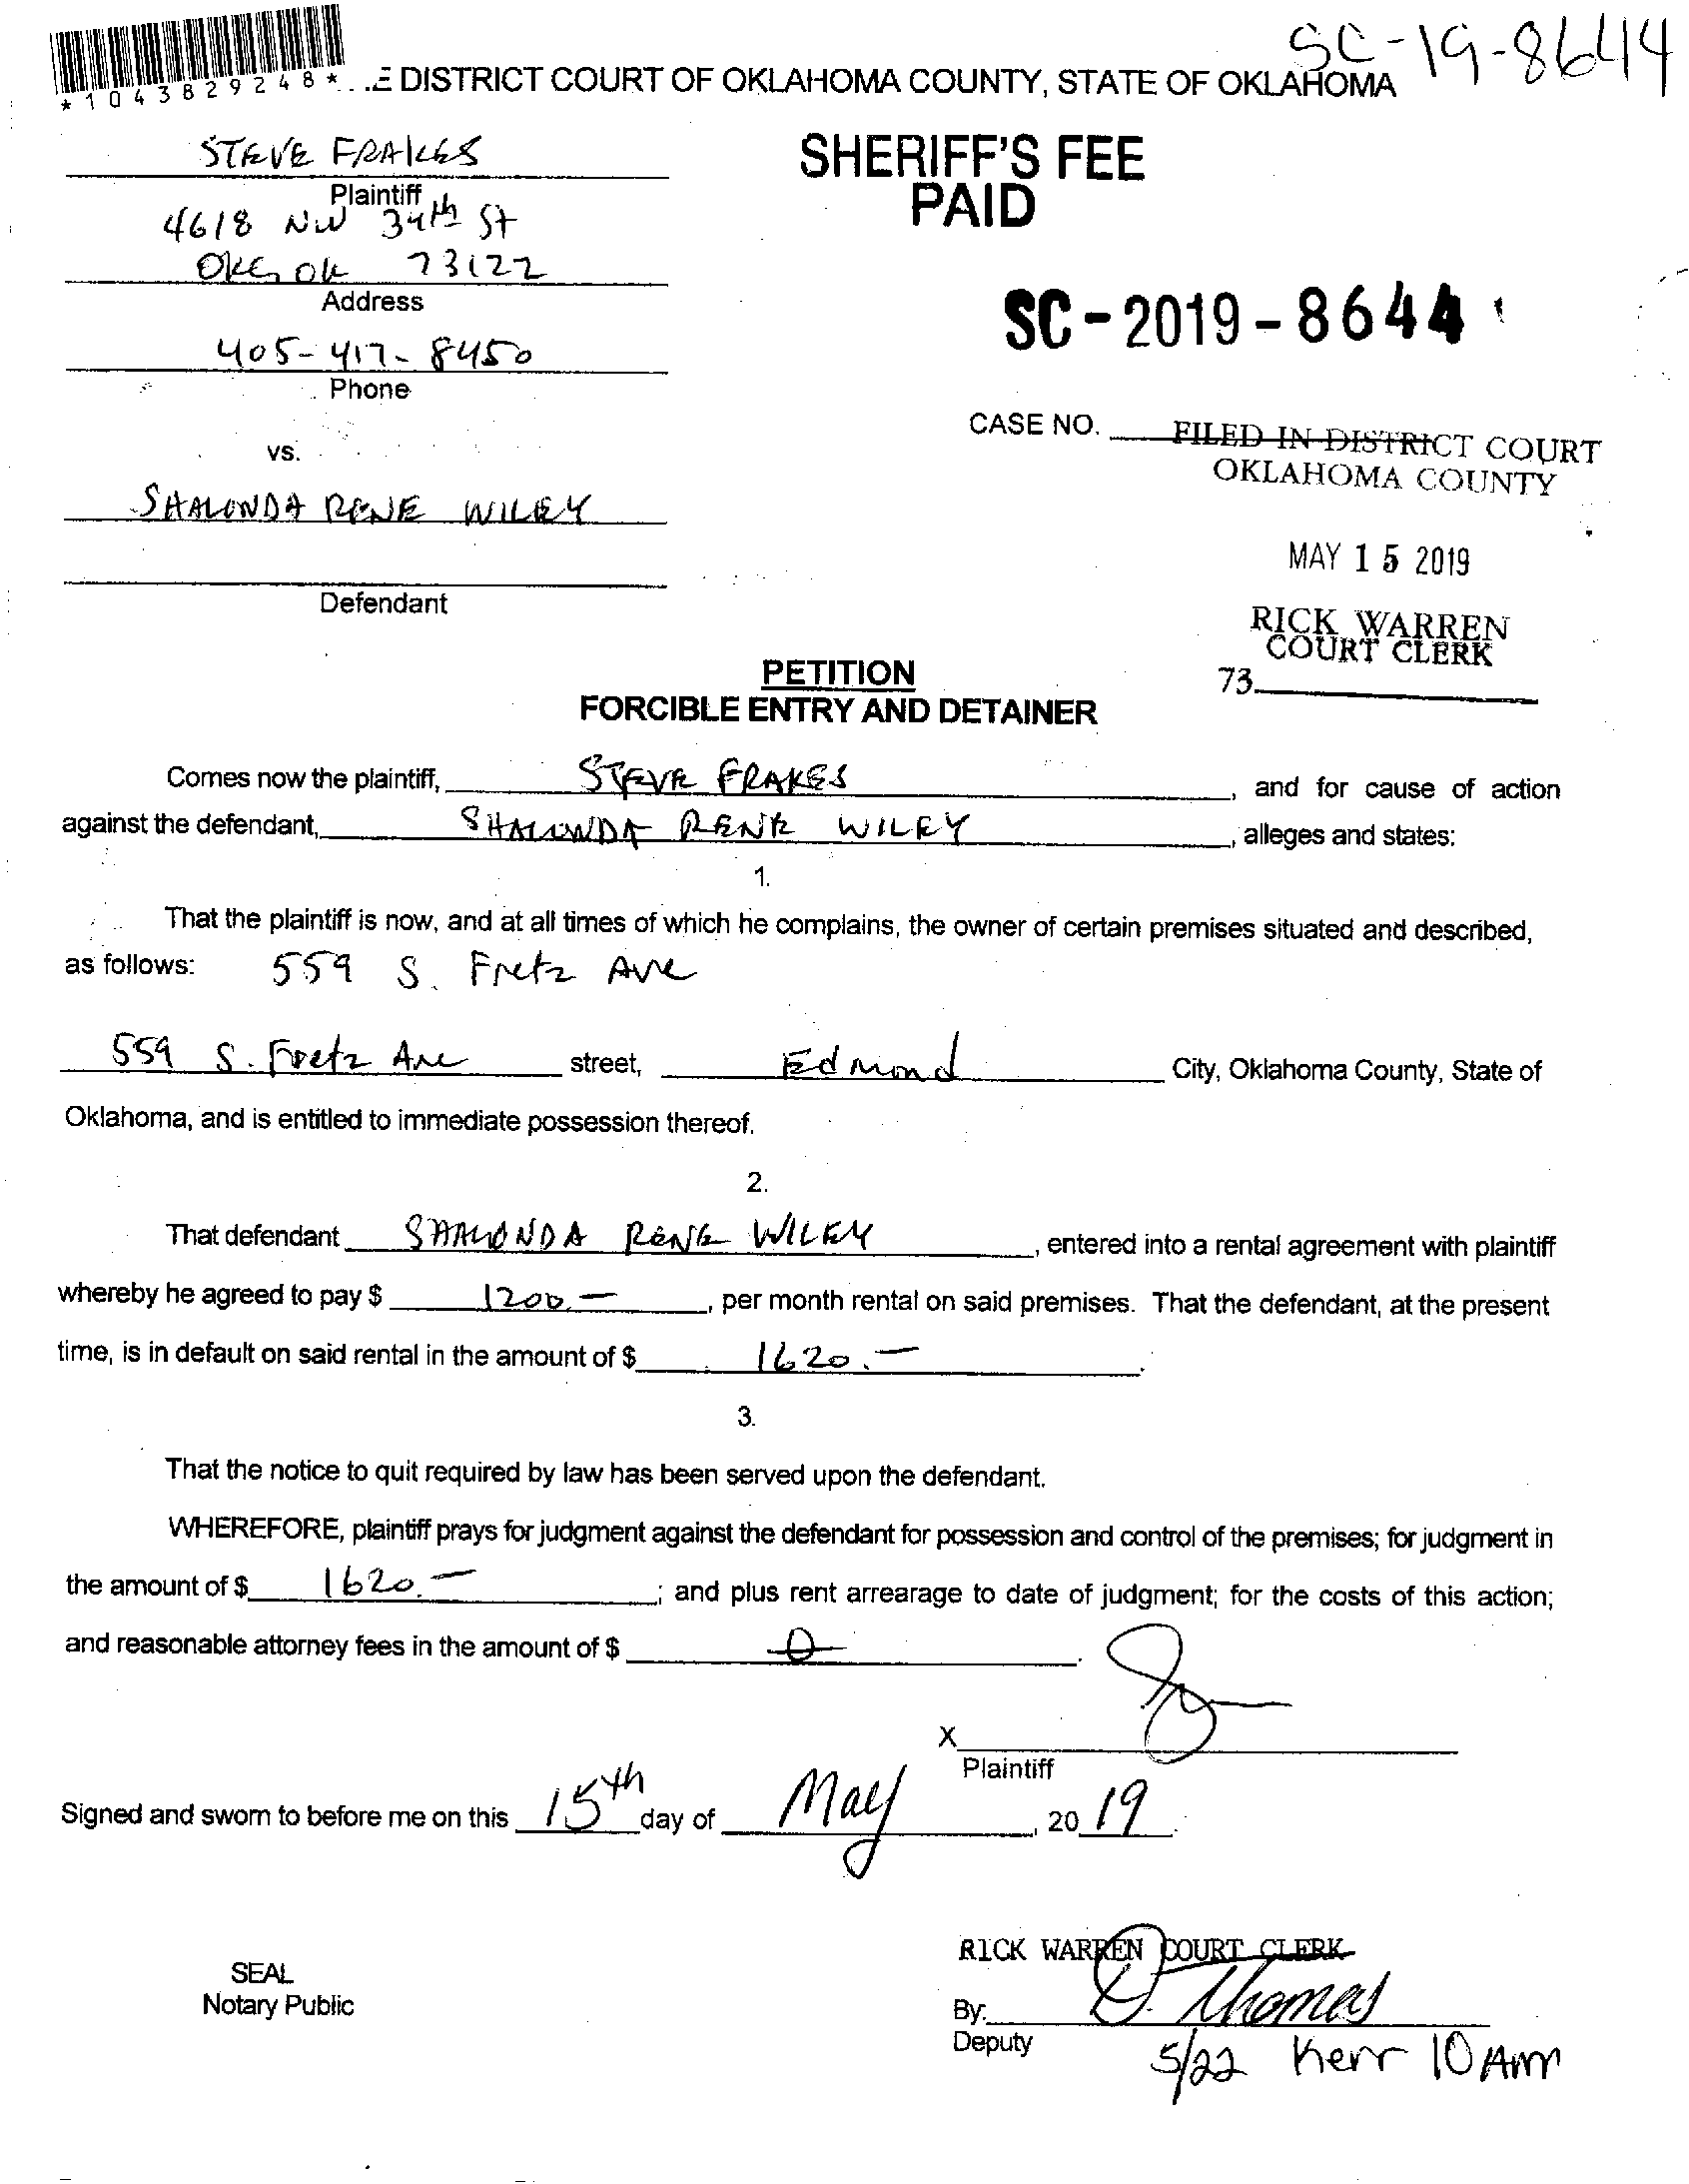 SC-19-8644
*1043829248*
E DISTRICT COURT OF OKLAHOMA COUNTY, STATE OF OKLAHOMA
STEVE FRAKES
Plaintiff
4618 NW 34th St
OKC, OK 73122
Address
405-417-8450
Phone
vs.
SHALONDA RENE WILEY
Defendant
SHERIFF'S FEE
PAID
SC-2019-8644
CASE NO.
FILED IN DISTRICT COURT
OKLAHOMA COUNTY
MAY 15 2019
RICK WARREN
COURT CLERK
73
PETITION
FORCIBLE ENTRY AND DETAINER
Comes now the plaintiff, STEVE FRAKES, and for cause of action
against the defendant, SHALONDA RENE WILEY, alleges and states:
1.
That the plaintiff is now, and at all times of which he complains, the owner of certain premises situated and described,
as follows: 559 S. Fretz Ave
559 S. Fretz Ave street, Edmond City, Oklahoma County, State of
Oklahoma, and is entitled to immediate possession thereof.
2.
That defendant SHALONDA RENE WILEY, entered into a rental agreement with plaintiff
whereby he agreed to pay $ 1200.—, per month rental on said premises. That the defendant, at the present
time, is in default on said rental in the amount of $ 1620.—.
3.
That the notice to quit required by law has been served upon the defendant.
WHEREFORE, plaintiff prays for judgment against the defendant for possession and control of the premises; for judgment in
the amount of $ 1620.—; and plus rent arrearage to date of judgment; for the costs of this action;
and reasonable attorney fees in the amount of $ 0.
X
Plaintiff
Signed and sworn to before me on this 15th day of May, 2019.
SEAL
Notary Public
RICK WARREN COURT CLERK
By: D. Thomas
Deputy
5/22 Kerr 10 AM